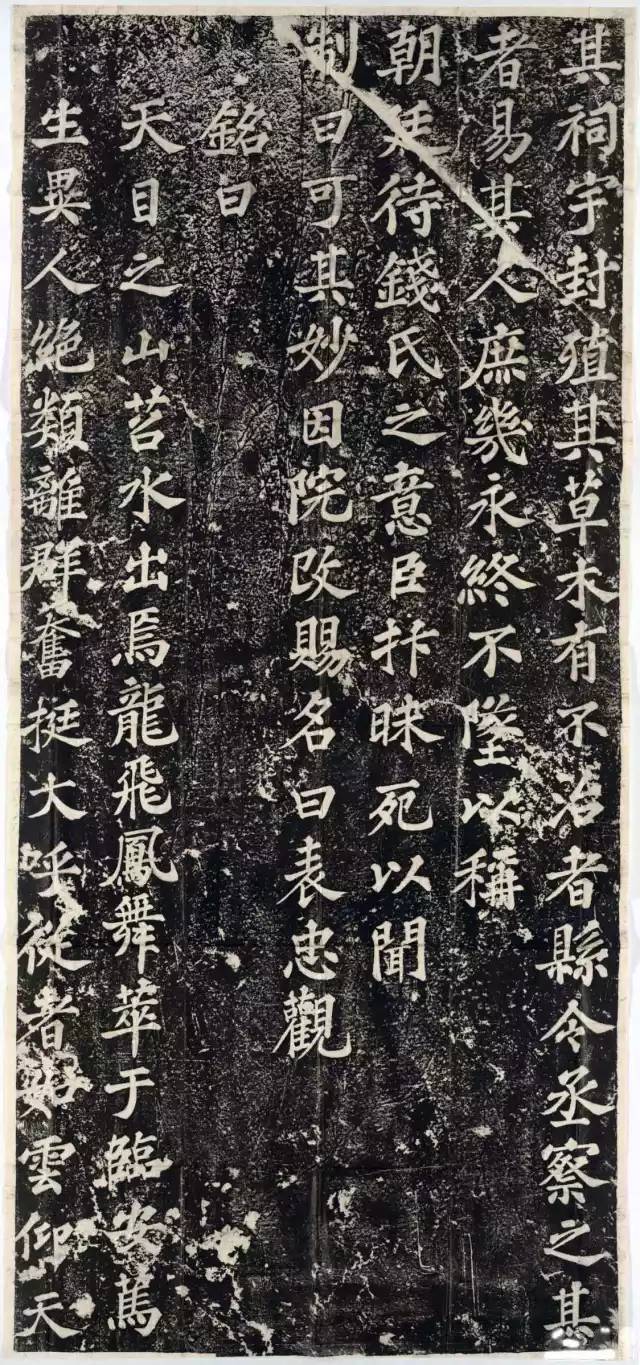 其祠宇封殖其草木有不治者縣令丞察之甚
者易其人庶幾永終不墜以稱
朝廷待錢氏之意臣抃昧死以聞
制曰可其妙因院改賜名曰表忠觀
銘曰
天目之山苕水出焉龍飛鳳舞萃于臨安篤
生異人絶類離群奮挺大呼從者如雲仰天